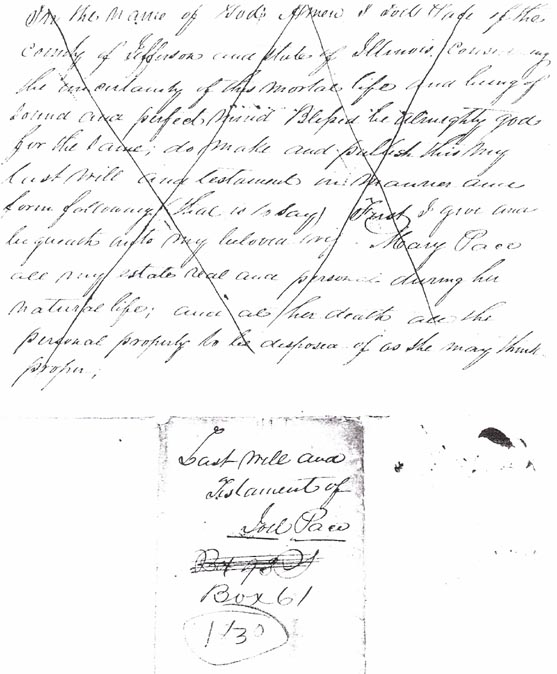 In the Name of God; Amen I Joel Pace of the
County of Jefferson and State of Illinois. Consid my
the uncertainty of this mortal life and being of
sound and perfect mind Blessed be almighty god
for the same; do make and publish this my
last will and testament in manner and
form following (that is to say) First I give and
bequeath unto my beloved wife Mary Pace
all my estate real and personal during her
natural life; and at her death all the
personal property to be disposed of as she may think
proper;
Last will and
Testament of
Joel Pace
Box 61
1130